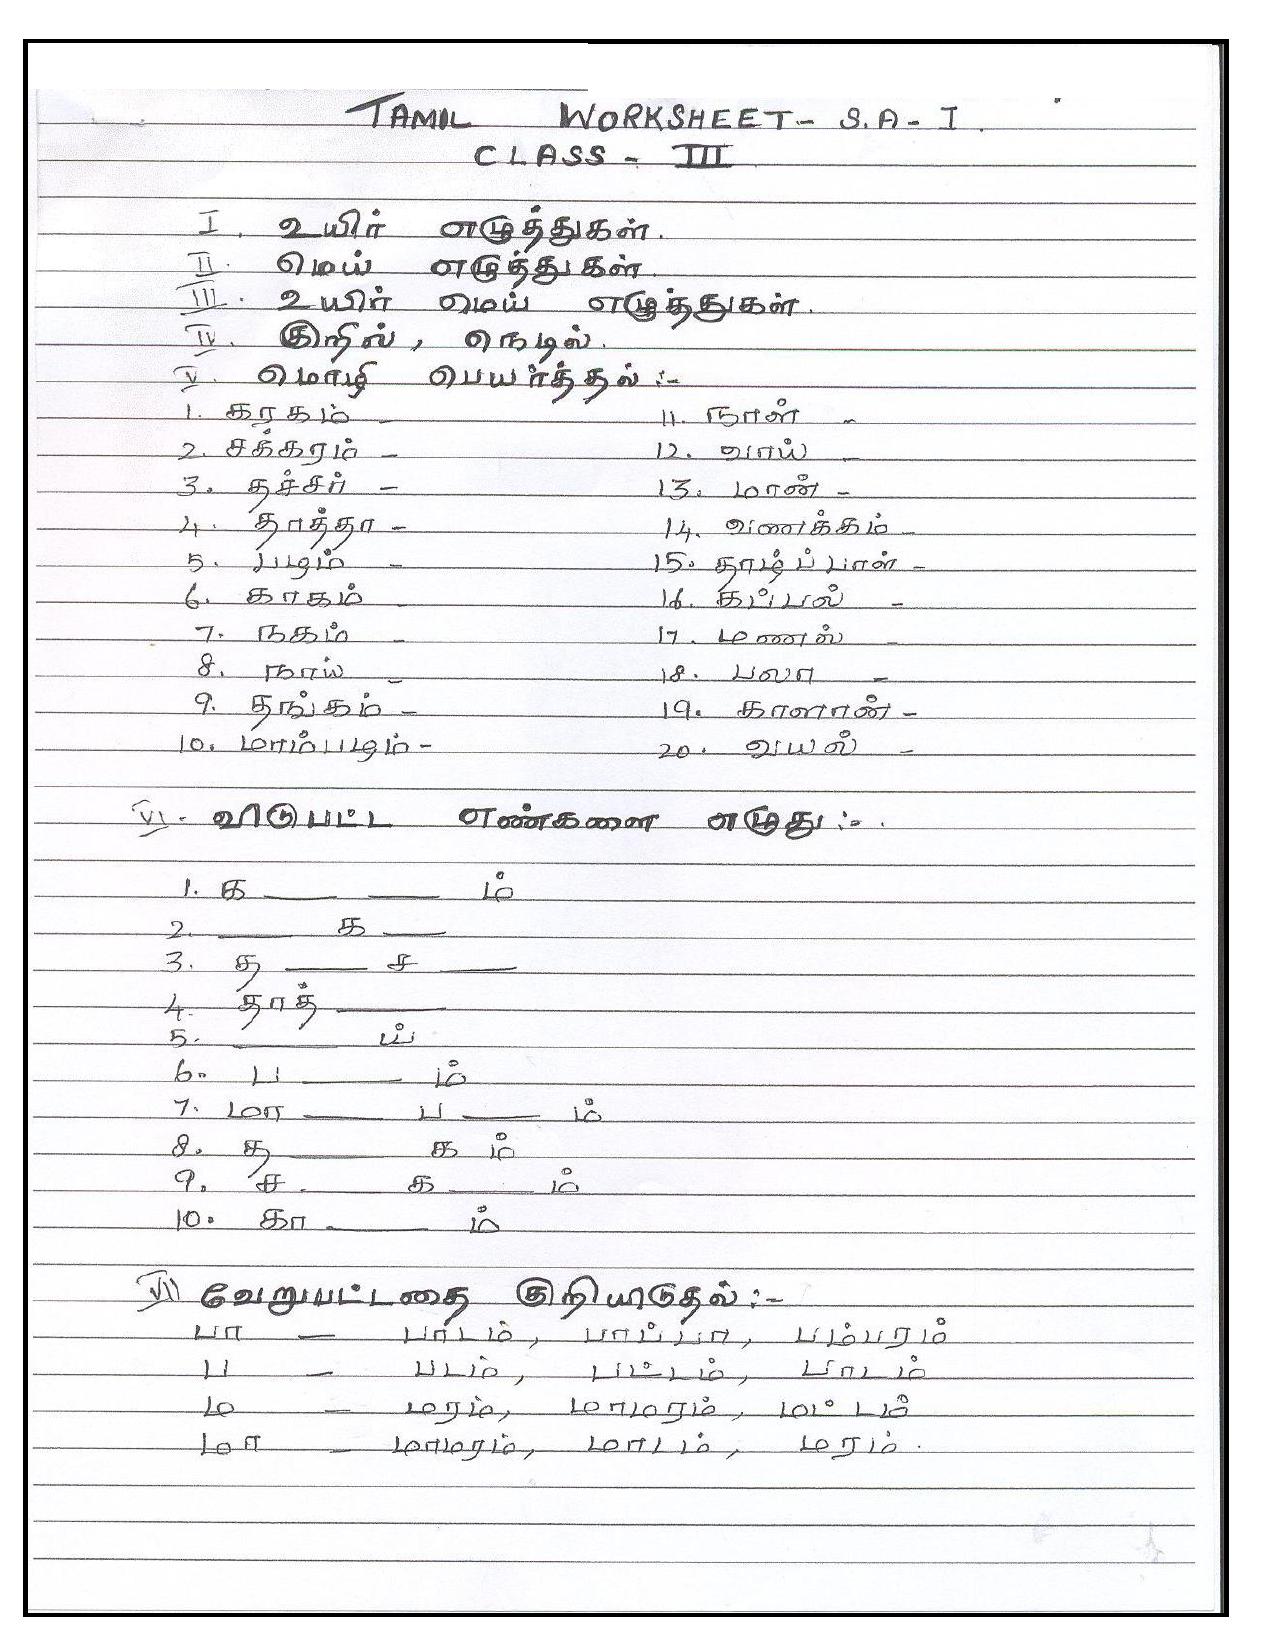 TAMIL WORKSHEET - S.A - I.
CLASS - III
I. உயிர் எழுத்துகள்.
II. மெய் எழுத்துகள்.
III. உயிர் மெய் எழுத்துகள்.
IV. குறில், நெடில்.
V. மொழி பெயர்த்தல் :-
1. கரகம் - 11. நான் -
2. சக்கரம் - 12. வாய் -
3. தச்சர் - 13. மான் -
4. தாத்தா - 14. வணக்கம் -
5. பழம் - 15. தாழ்ப்பாள் -
6. காகம் - 16. கப்பல் -
7. நகம் - 17. மணல் -
8. நாய் - 18. பலா -
9. தங்கம் - 19. காளான் -
10. மாம்பழம் - 20. வயல் -
VI. விடுபட்ட எண்களை எழுது :-
1. க ____ ____ ம்
2. ____ க ____
3. த ____ ச ____
4. தாத் ____
5. ____ ய்
6. ப ____ ம்
7. மா ____ ப ____ ம்
8. த ____ க ம்
9. ச ____ க ____ ம்
10. கா ____ ம்
VII வேறுபட்டதை குறியிடுதல் :-
பா - பாடம், பாப்பா, பம்பரம்
ப - படம், பட்டம், பாடம்
ம - மரம், மாமரம், மட்டம்
மா - மாமரம், மாடம், மரம்.